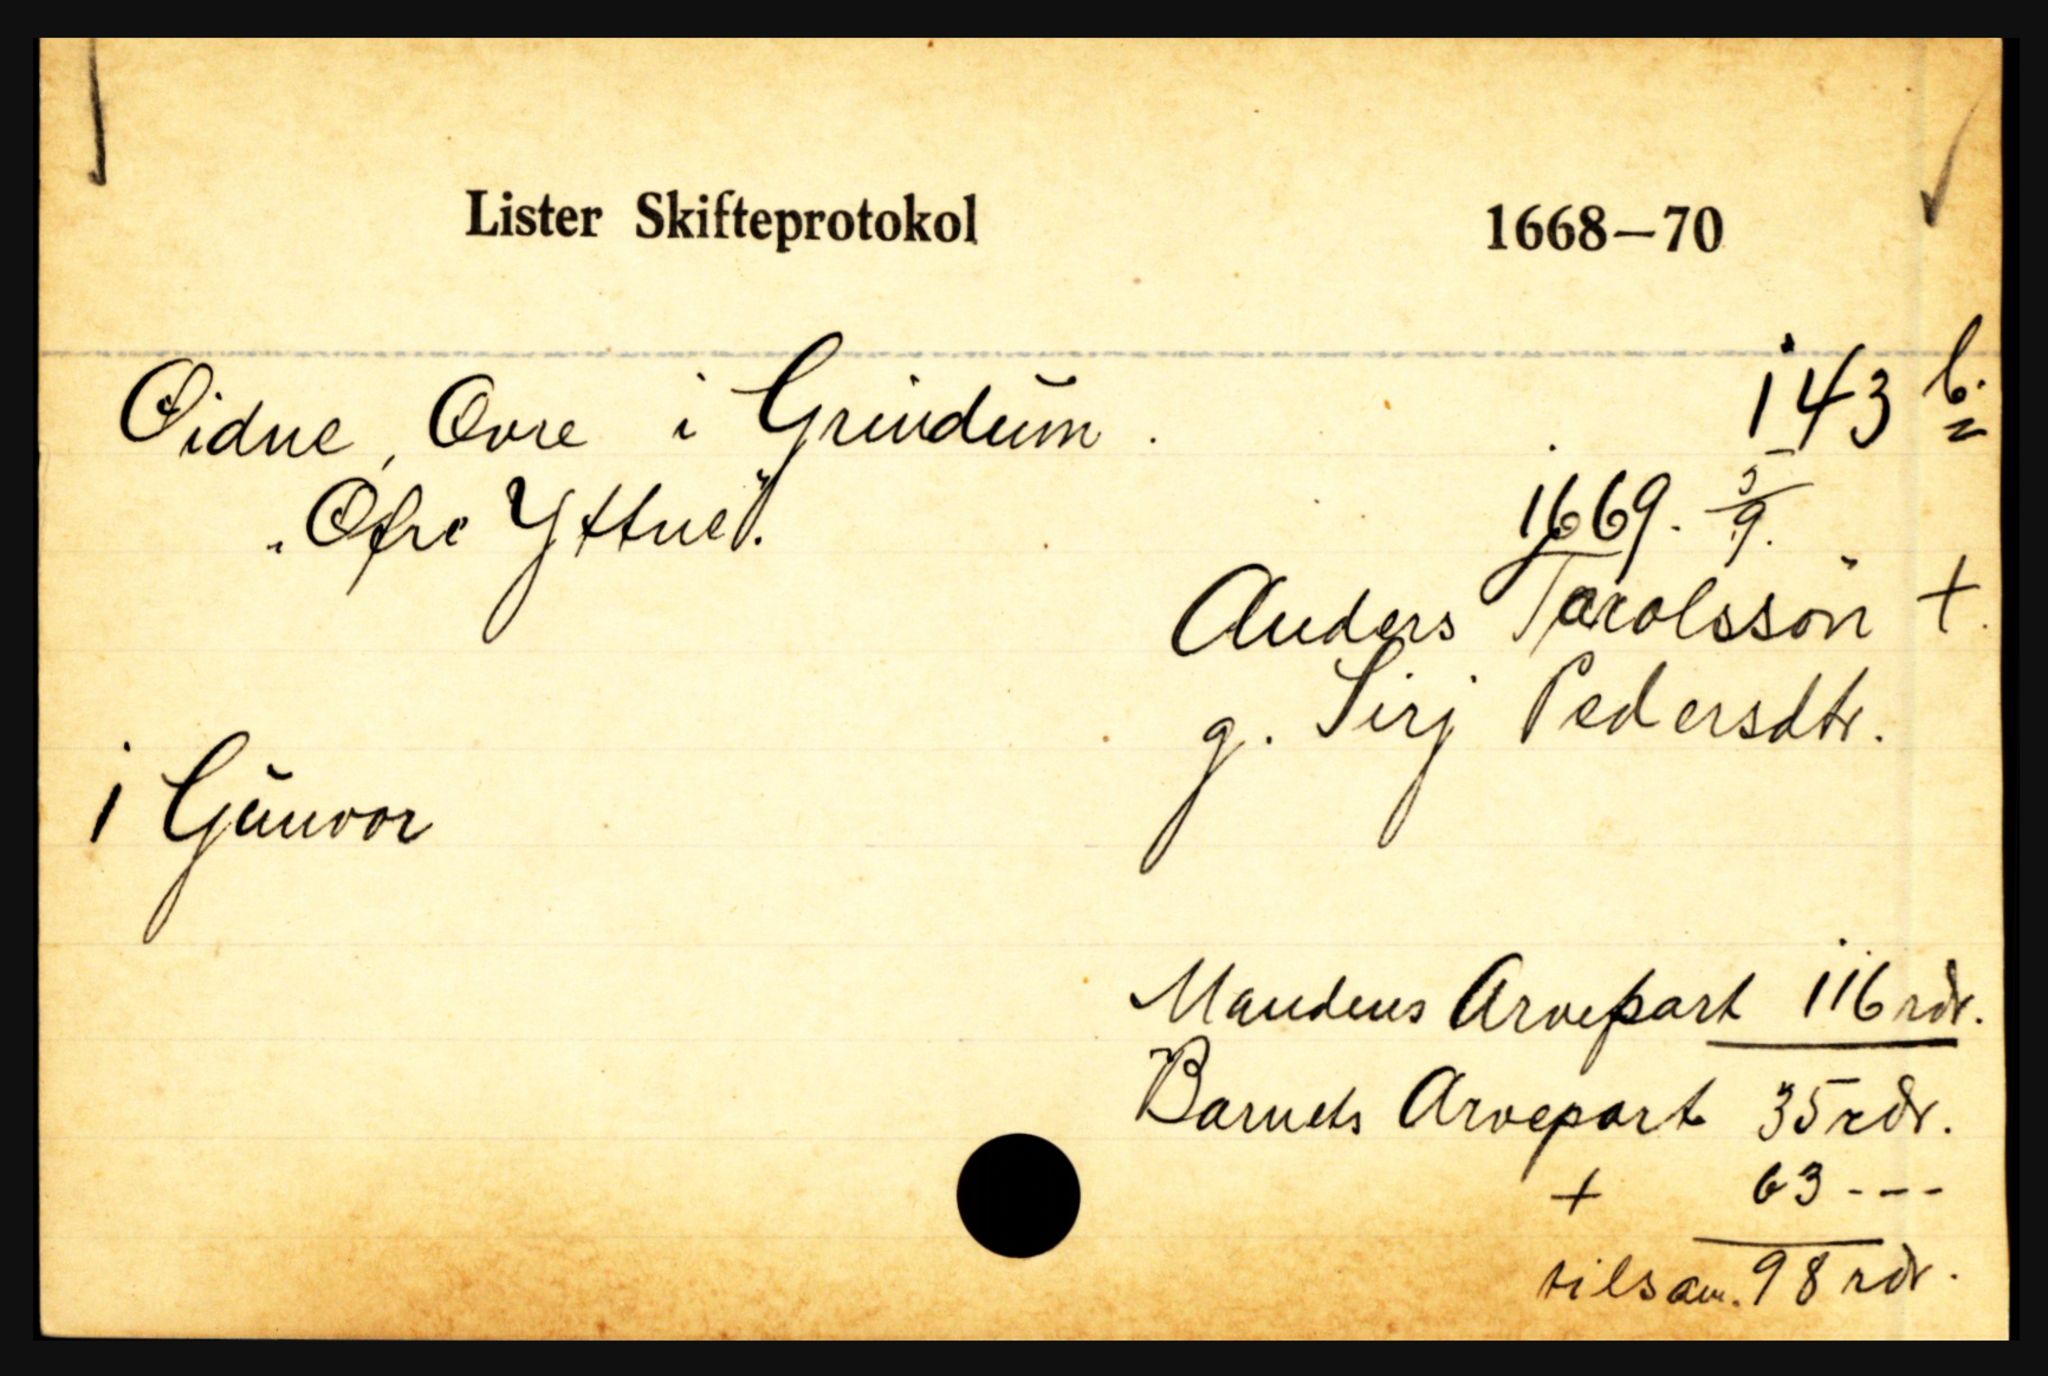 Lister Skifteprotokol 1668–70
Øidne, Øvre i Grindum. 143 b.
„Øfre Yttne". 1669. 5/9.
Anders Tarolssön +.
g. Sirj Pedersdtr.
1 Gunvor
Mandens Arvepart 116 rdr.
Barnets Arvepart 35 rdr.
+ 63 ---
tilsam. 98 rdr.